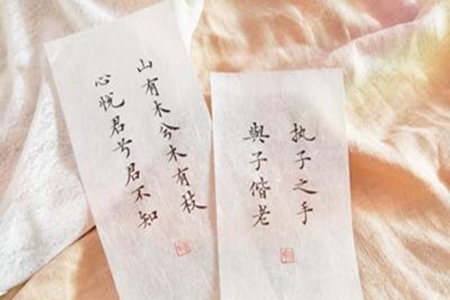 山有木兮木有枝
心悦君兮君不知
执子之手
與子偕老